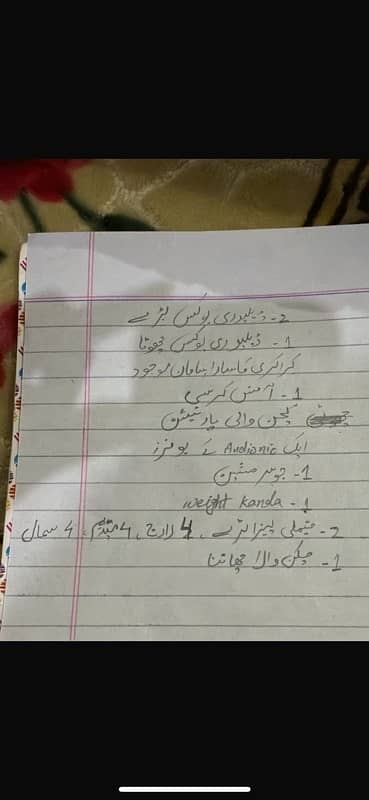 2- ڈیلیوری بوکس بڑے
1- ڈیلیوری بوکس چھوٹا
کراکری کا سارا سامان موجود
1- آفس کرسی
کچن والی پارٹیشن
ایک Audionic کے بوفرز
1- جوسر مشین
1- weight kanda
2- فیملی پیزا ٹرے، 4 لارج، 4 میڈیم، 4 سمال
1- چکن والا چھاننا